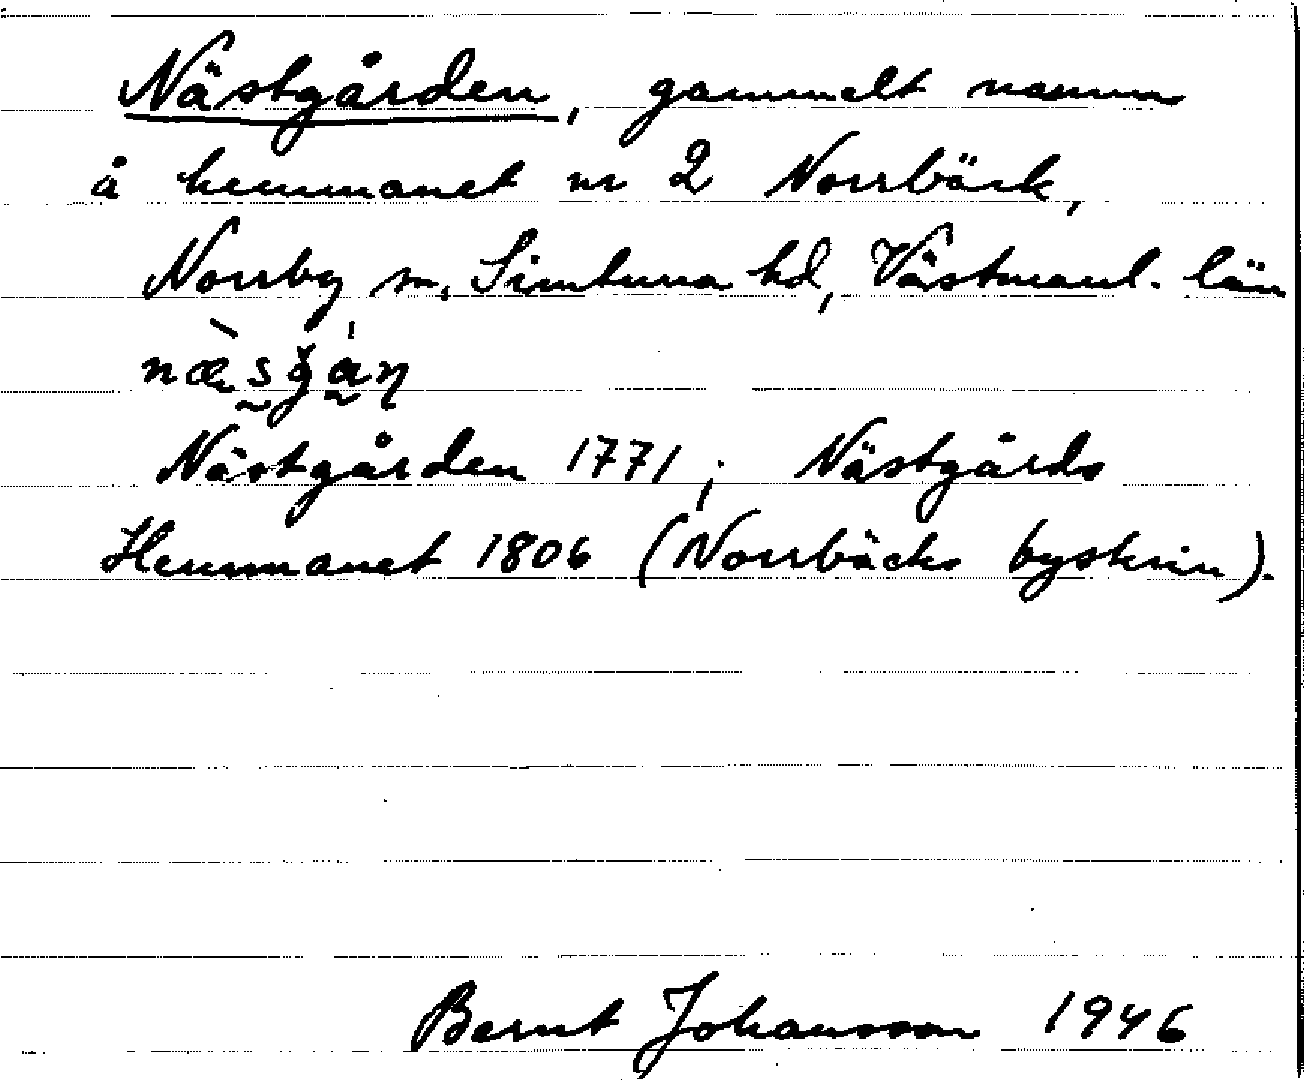 Nästgården, gammelt namn
å hemmanet nr 2 Norrbäck,
Norrby sn, Simtuna hd, Västmanl. län
Nästgården 1771; Nästgårds
Hemmanet 1806 (Norrbäcks byskrin).
Bernt Johansson 1946